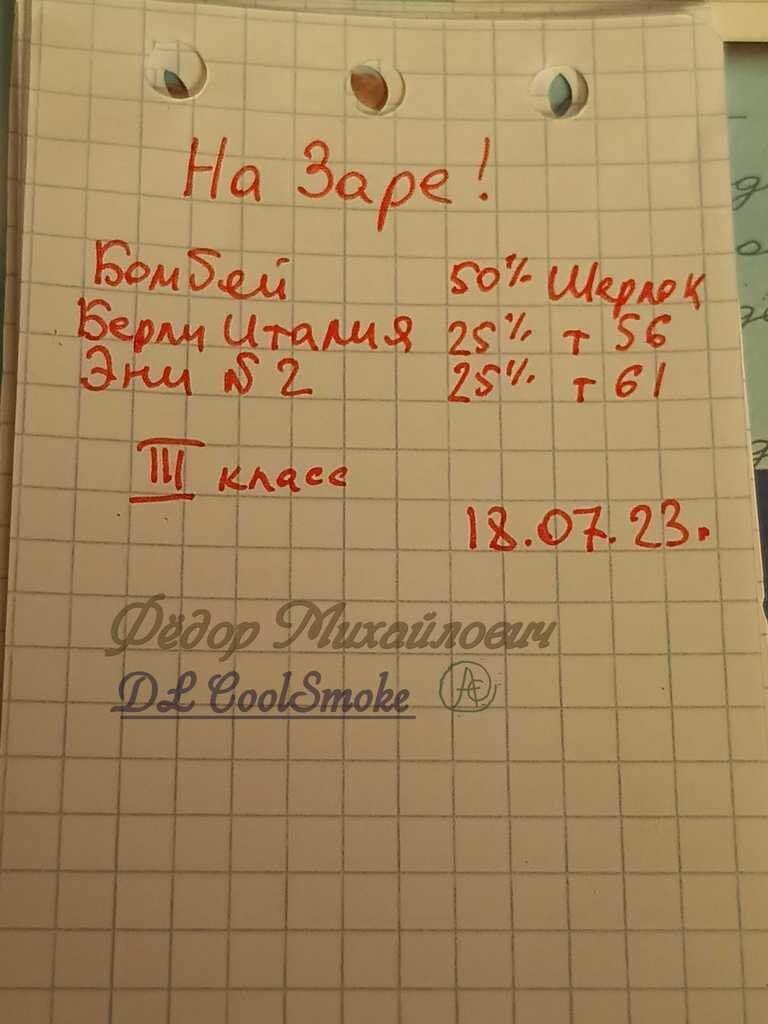 На Заре!
Бомбей 50% Шерлок
Берли Италия 25% т 56
Эни №2 25% т 61
III класс
18.07.23.
Фёдор Михайлович
DL CoolSmoke